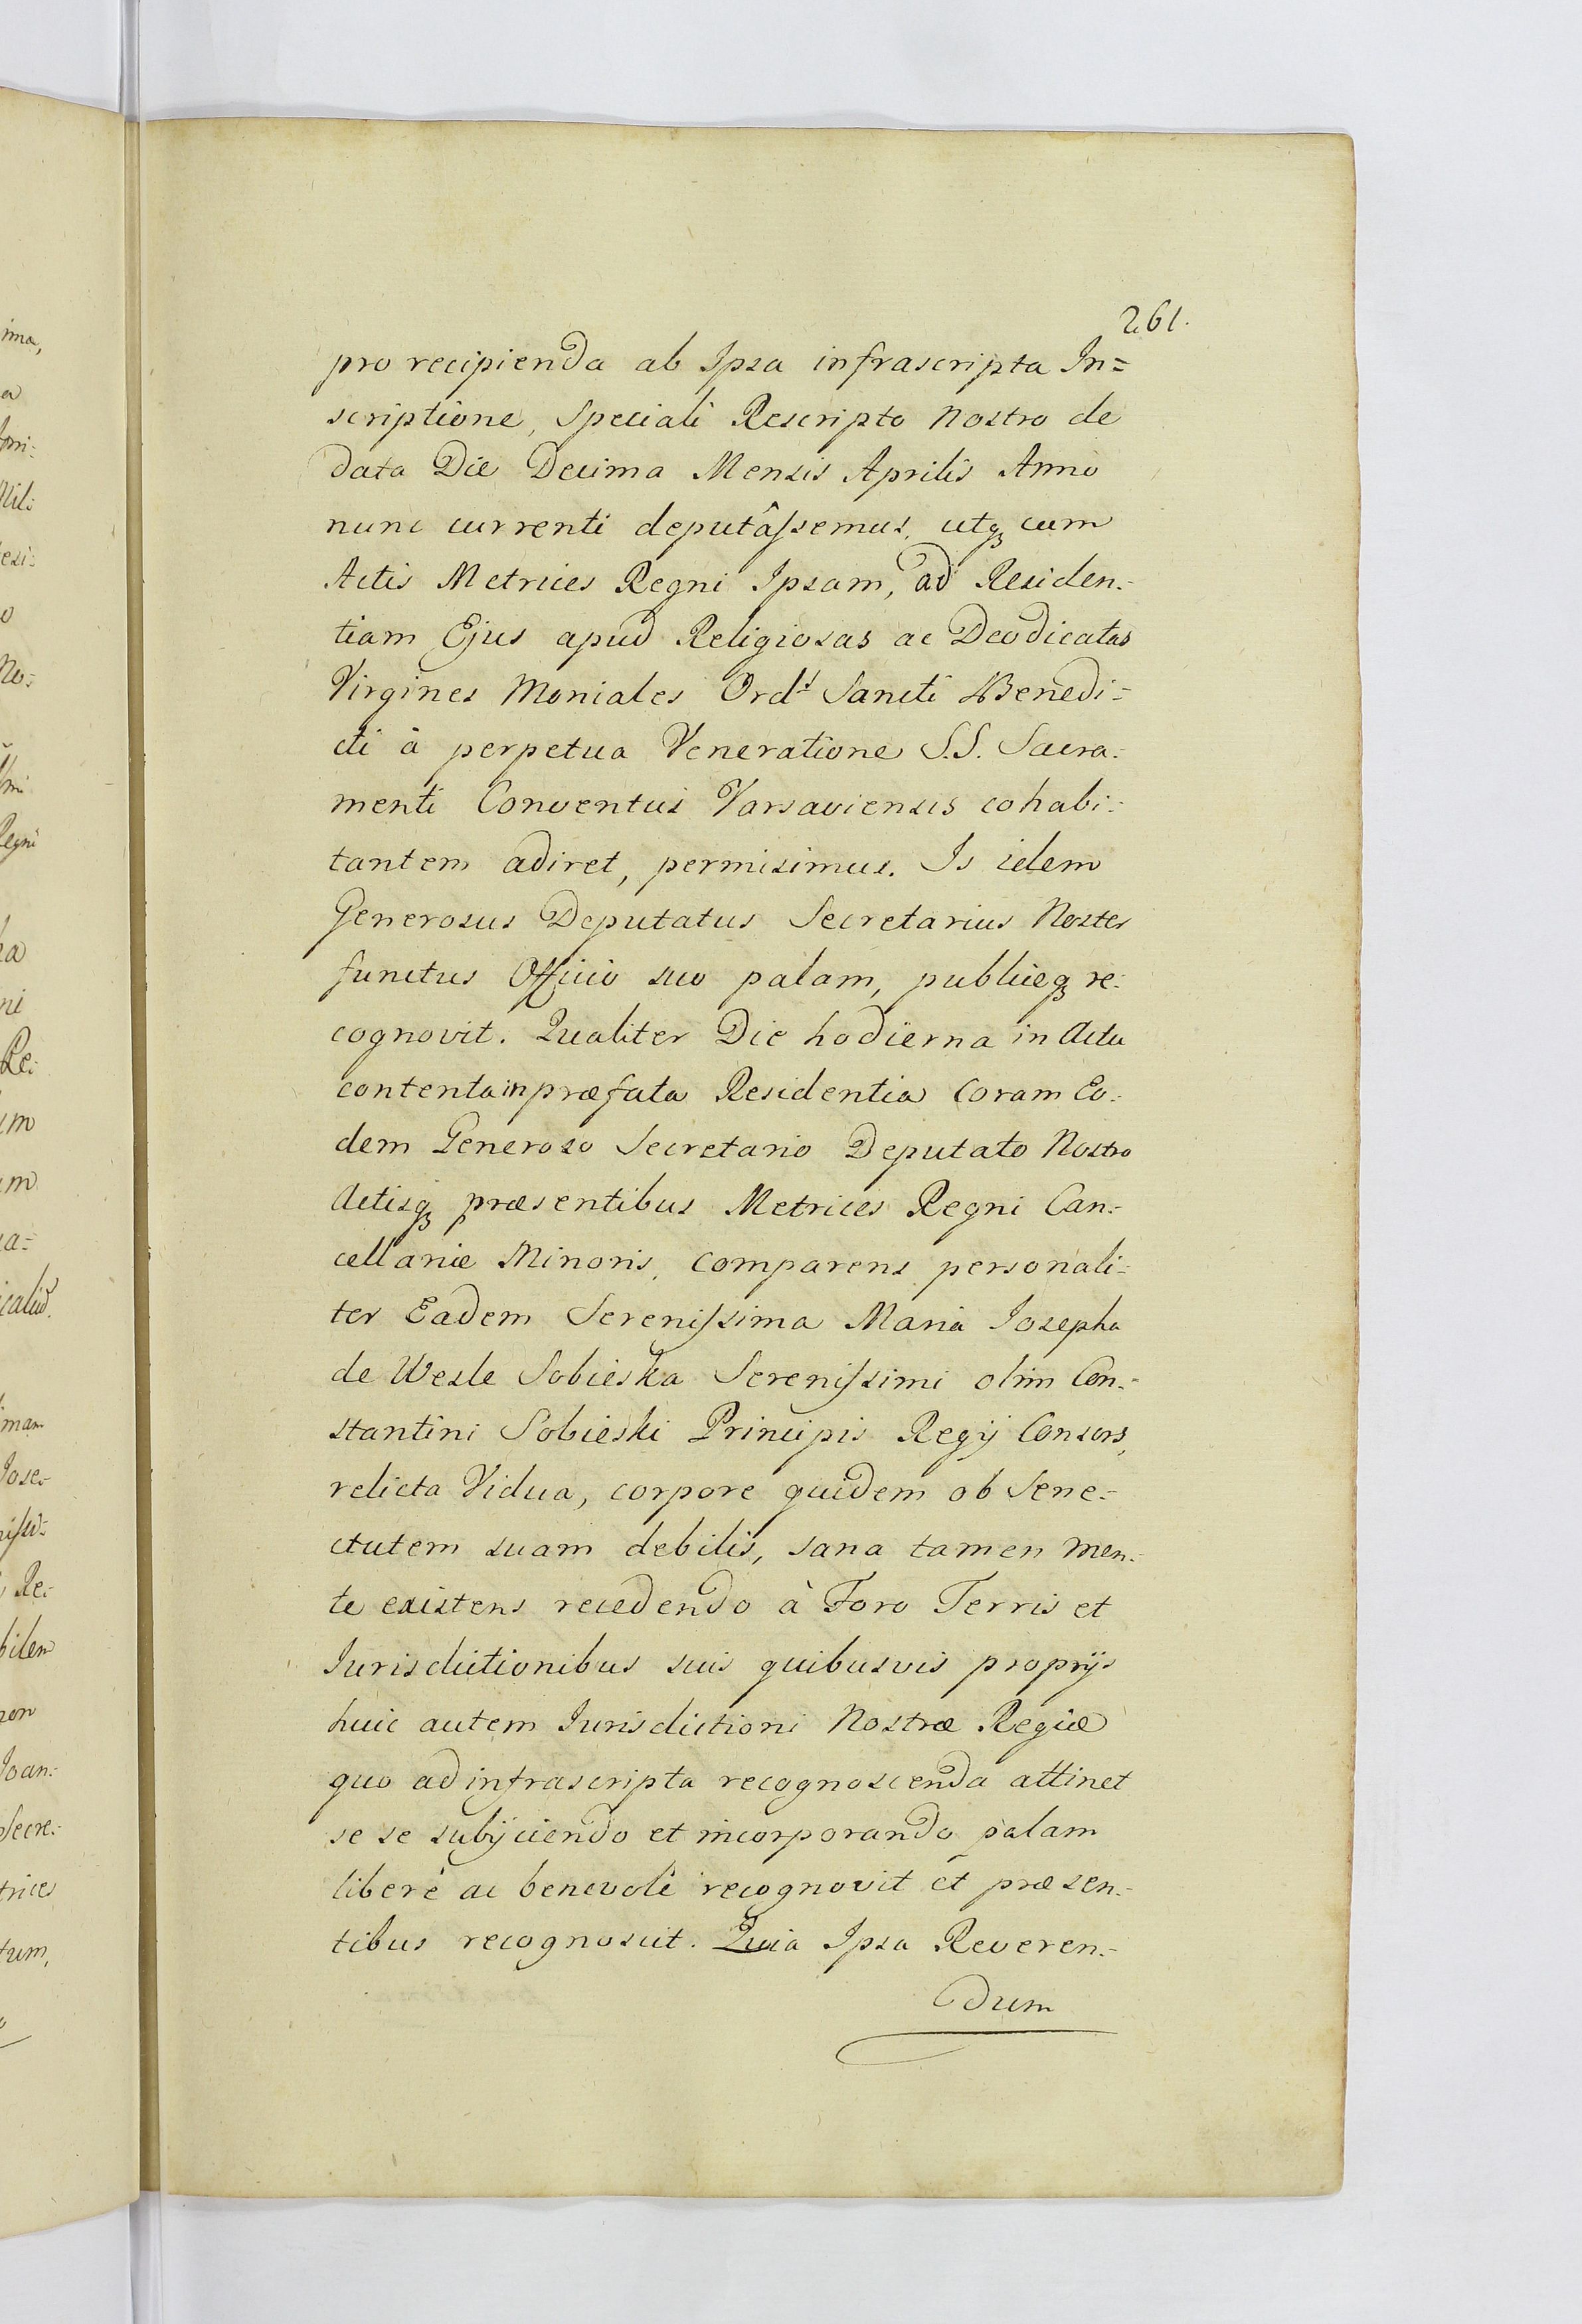 261.
pro recipienda ab Ipsa infrascripta In=
scriptione, Speciali Rescripto Nostro de
data Die Decima Mensis Aprilis Anno
nunc currenti deputâssemus, utq3 cum
Actis Metrices Regni Ipsam, ad Residen:
tiam Ejus apud Religiosas ac Deodicatas
Virgines Moniales Ord.s Sancti Benedi=
cti à perpetua Veneratione S.S. Sacra:
menti Conventus Varsaviensis cohabi:
tantem adiret, permisimus. Is idem
Generosus Deputatus Secretarius Noster
functus Officio suo palam, publiceq3 re:
cognovit. Qualiter Die hodierna in Actu
contenta in præfata Residentia Coram Eo:
dem Generoso Secretario Deputato Nostro
Actisq3 præsentibus Metrices Regni Can:
cellariæ Minoris, comparens personali=
ter Eadem Serenissima Maria Josepha
de Wesle Sobieska Serenissimi olim Con:
stantini Sobieski Principis Regij Consors,
relicta Vidua, corpore quidem ob Sene:
ctutem suam debilis, sana tamen men:
te existens recedendo à Foro Terris et
Jurisdictionibus suis quibusvis proprijs
huic autem Jurisdictioni Nostræ Regiæ
quo ad infrascripta recognoscenda attinet
se se subijciendo et incorporando palam
liberè ac benevolè recognovit et præsen:
tibus recognoscit. Quia Ipsa Reveren:
dum